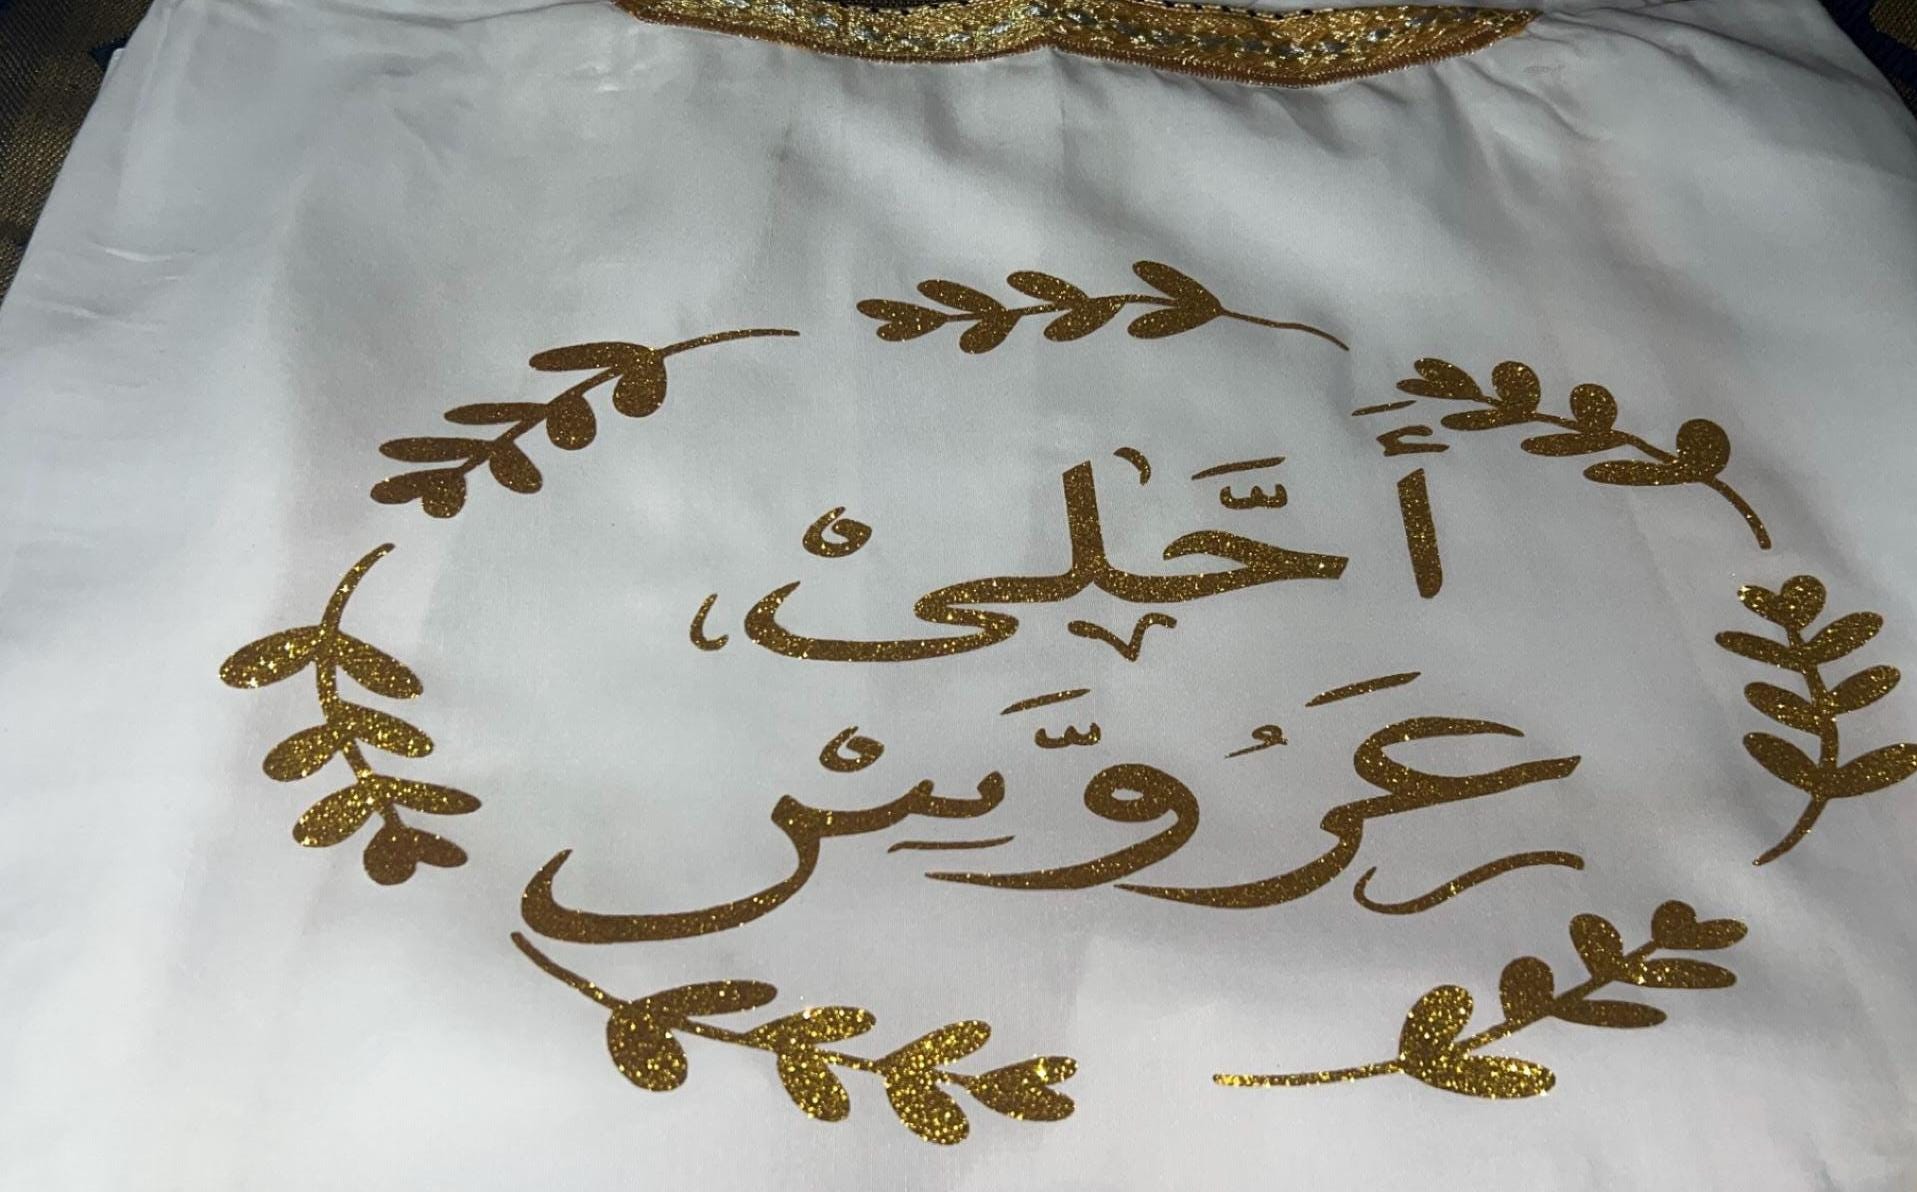 أَحَّلىْ
عَرُوَّسِْ